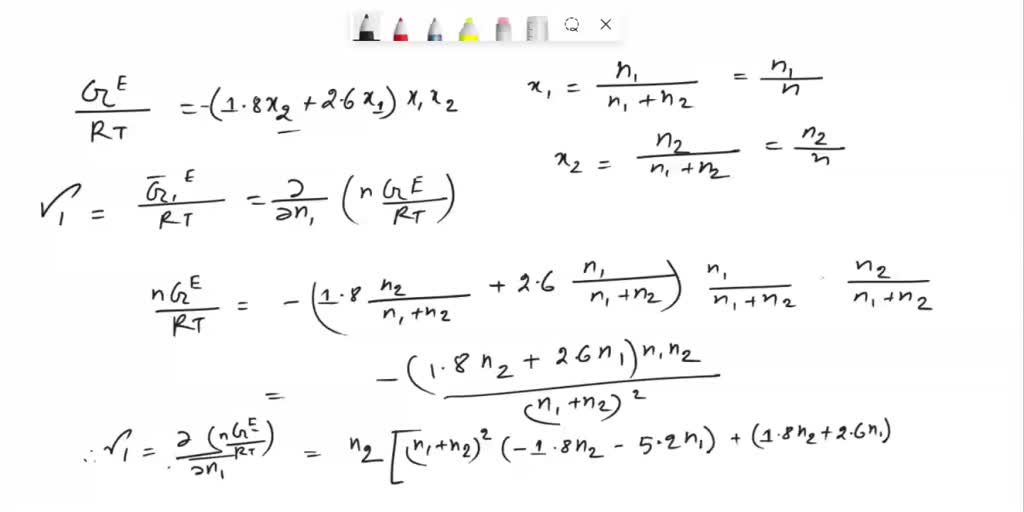 G^E/RT = -(1.8x₂ + 2.6x₁) x₁x₂
x₁ = n₁/(n₁+n₂) = n₁/n
x₂ = n₂/(n₁+n₂) = n₂/n
γ₁ = Ḡ₁^E/RT = ∂/∂n₁ (n G^E/RT)
nG^E/RT = -(1.8 n₂/(n₁+n₂) + 2.6 n₁/(n₁+n₂)) n₁/(n₁+n₂) · n₂/(n₁+n₂)
= -(1.8n₂ + 2.6n₁)n₁n₂/(n₁+n₂)²
∴ γ₁ = ∂(nG^E/RT)/∂n₁ = n₂[(n₁+n₂)²(-1.8n₂ - 5.2n₁) + (1.8n₂+2.6n₁)